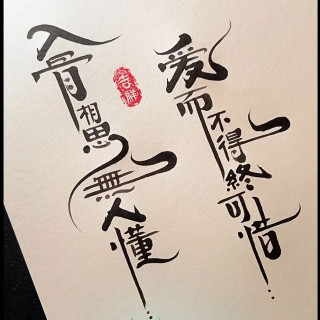 爱而不得終可惜
入骨相思無人懂
吉祥